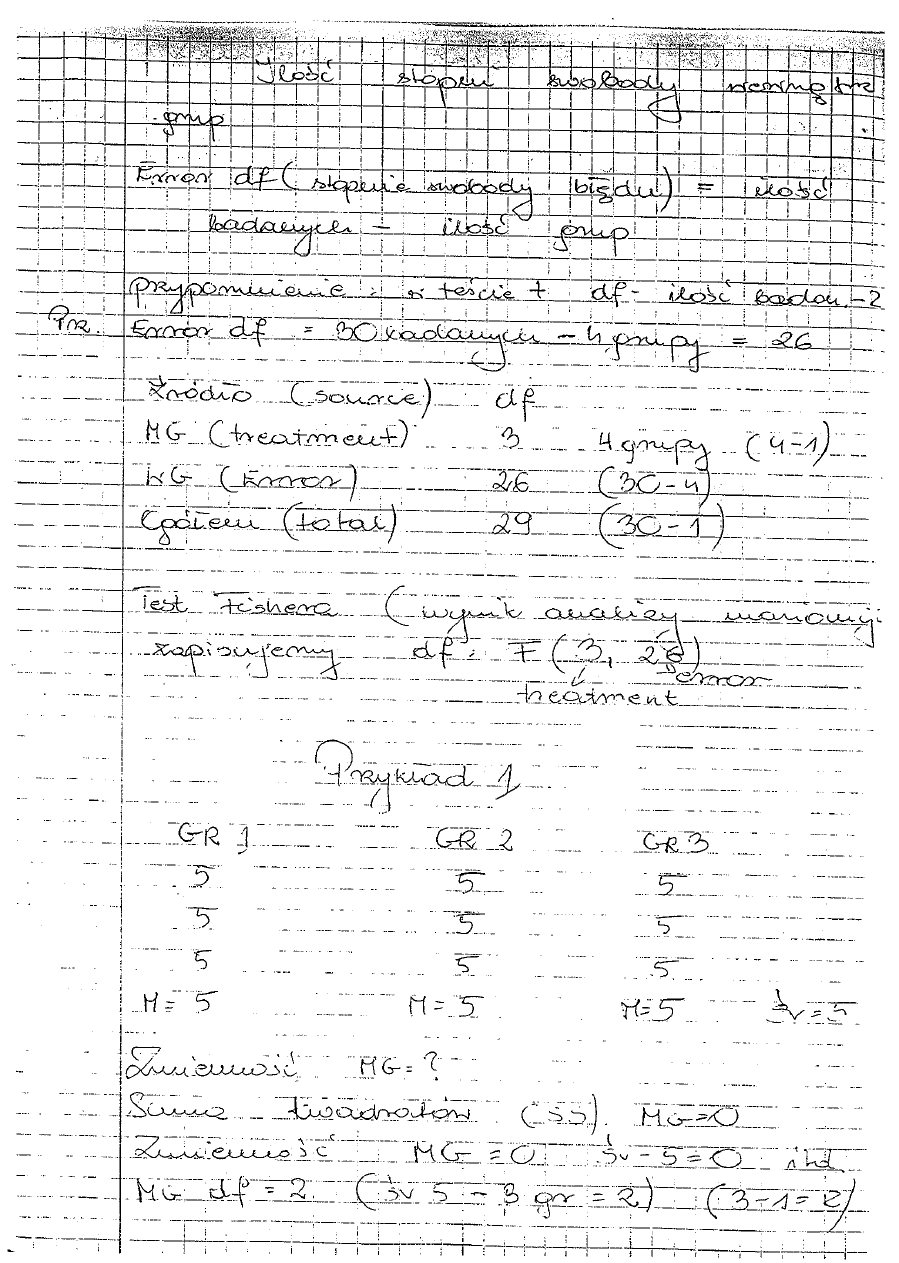 Ilość stopni swobody wewnątrz
grup
Error df (stopnie swobody błędu) = ilość
badanych - ilość grup
przypomnienie: w teście t df - ilość badan. -2
Prz. Error df = 30 badanych - 4 grupy = 26
Źródło (source) df
MG (treatment) 3 4 grupy (4-1)
WG (Error) 26 (30-4)
Ogółem (total) 29 (30-1)
Test Fishera (wynik analizy wariancji
zapisujemy df: F (3, 26)
error
treatment
Przykład 1
GR 1 GR 2 GR 3
5 5 5
5 5 5
5 5 5
M= 5 M= 5 M=5 śr=5
Zmienność MG=?
Suma kwadratów (SS) MG=0
Zmienność MG=0 śr-5=0 itd.
MG df = 2 (śr 5 - 3 gr = 2) (3-1=2)